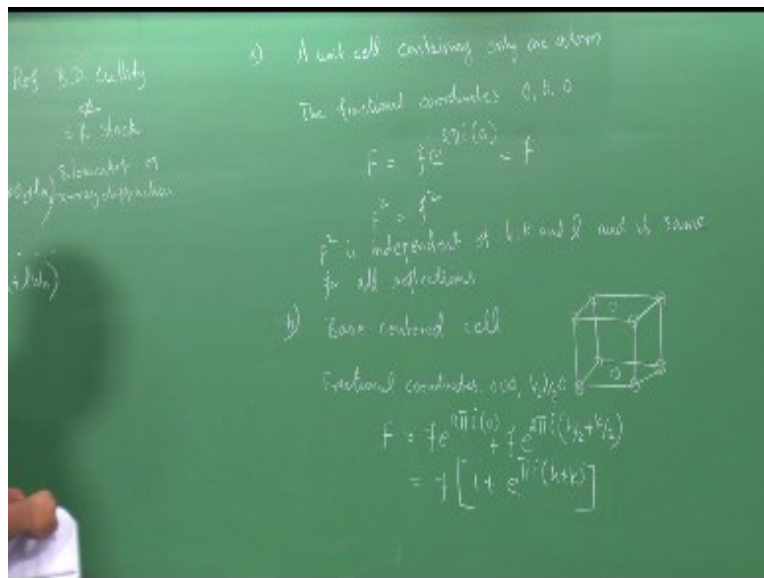 Ref B.D. Cullity
& S.R. Stock
Elements of
x-ray diffraction
a) A unit cell containing only one atom
The fractional coordinates 0, 0, 0
F = fe^{2πi(0)} = f
F² = f²
F² is independent of h, k and l and is same
for all reflections
b) Base centered cell
Fractional coordinates 000, ½ ½ 0
F = fe^{2πi(0)} + fe^{2πi(h/2+k/2)}
= f[1 + e^{πi(h+k)}]